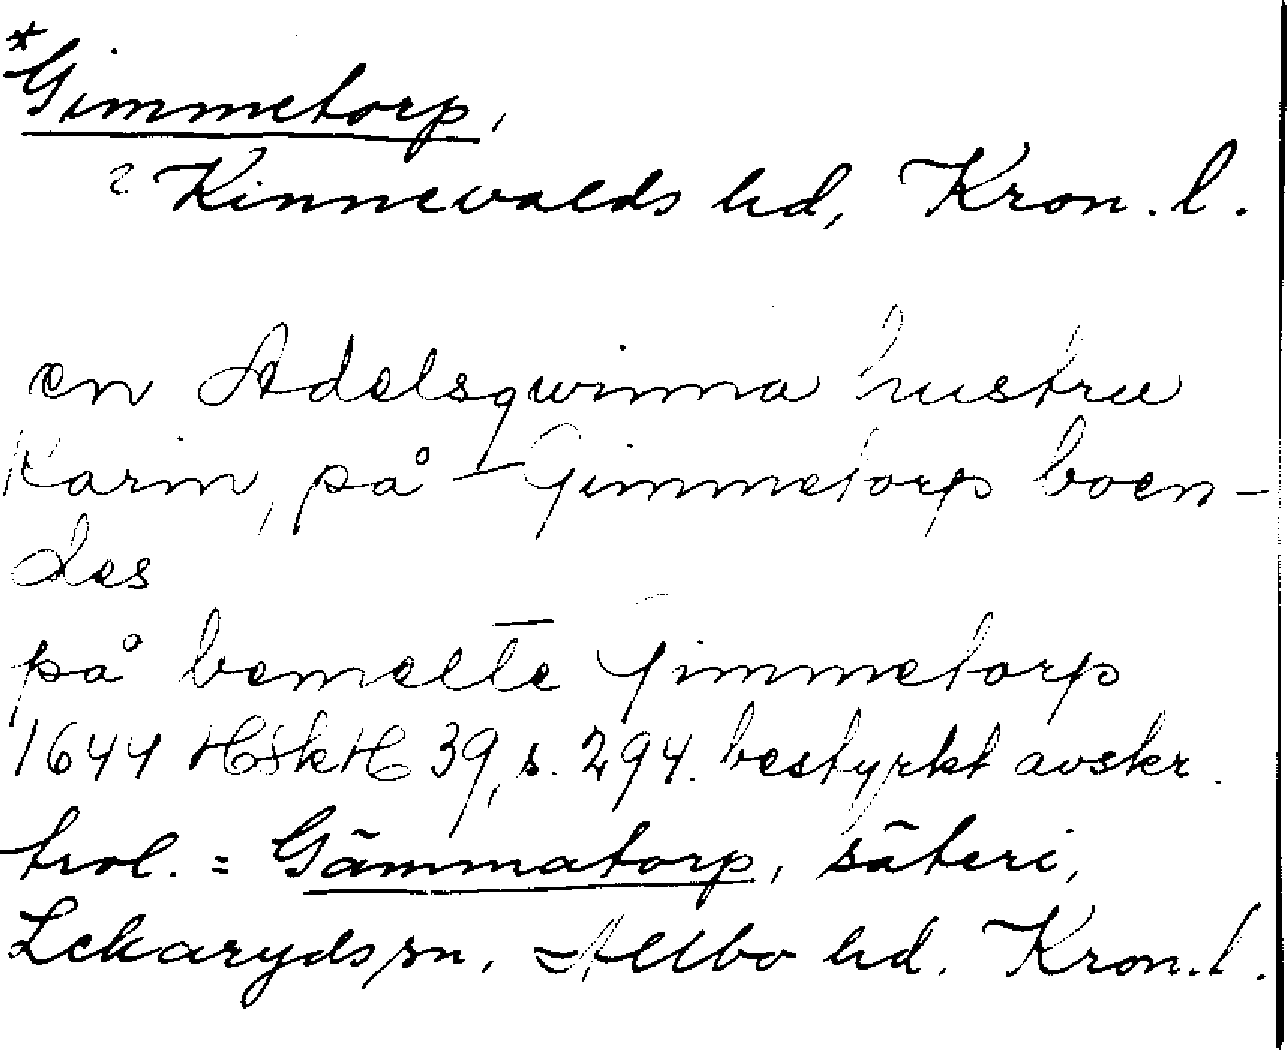 *Gimmetorp,
? Kinnevalds hd, Kron. l.
en Adelsqwinna hustru
Karin, på Gimmetorp boen-
des
på bemelte Gimmetorp
1644 HSkH 39, s. 294. bestyrkt avskr.
trol. = Gämmatorp, säteri,
Lekaryds sn. Allbo hd. Kron. l.